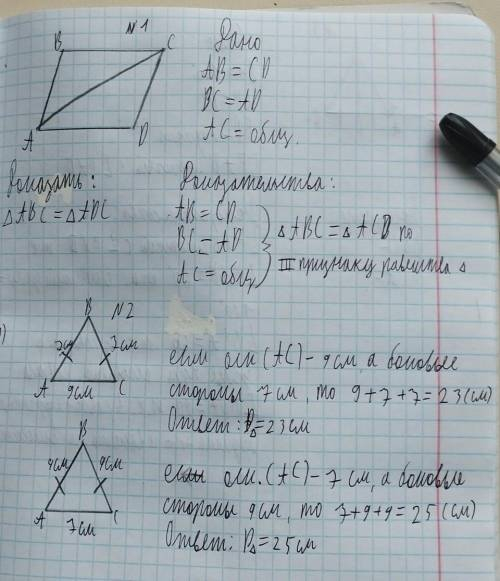 N1
B C
A D
Дано
AB = CD
BC = AD
AC = общ.
Доказать:
△ABC = △ADC
Доказательства:
AB = CD
BC = AD
AC = общ
△ABC = △ACD по
III признаку равенства △
N2
B
7см 7см
A 9см C
если осн. (AC) - 9см а боковые
стороны 7см, то 9+7+7=23(см)
Ответ: P△=23см
B
9см 9см
A 7см C
если осн. (AC) - 7 см, а боковые
стороны 9см, то 7+9+9=25 (см)
Ответ: P△=25см